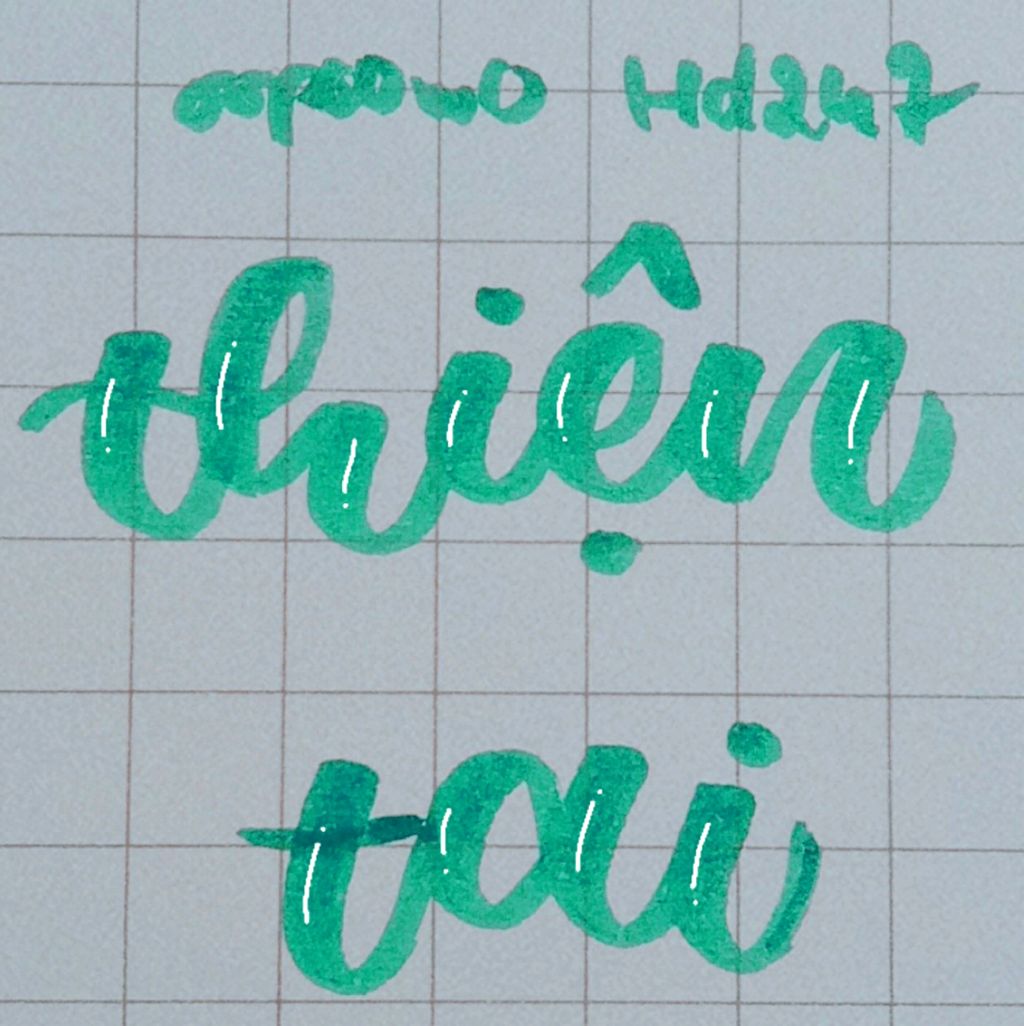 Hd247
thiện
tai